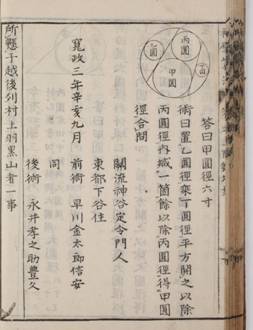 丙圓
乙圓
丁圓
甲圓
答曰甲圓徑六寸
術曰置乙圓徑乗丁圓徑平方開之以除
丙圓徑内減一箇餘以除丙圓徑得甲圓
徑合問
關流神谷定令門人
東都下谷住
寛政三年辛亥九月 前術 早川金太郎信安
同
後術 永井孝之助豊久
所懸于越後州村上羽黒山者一事